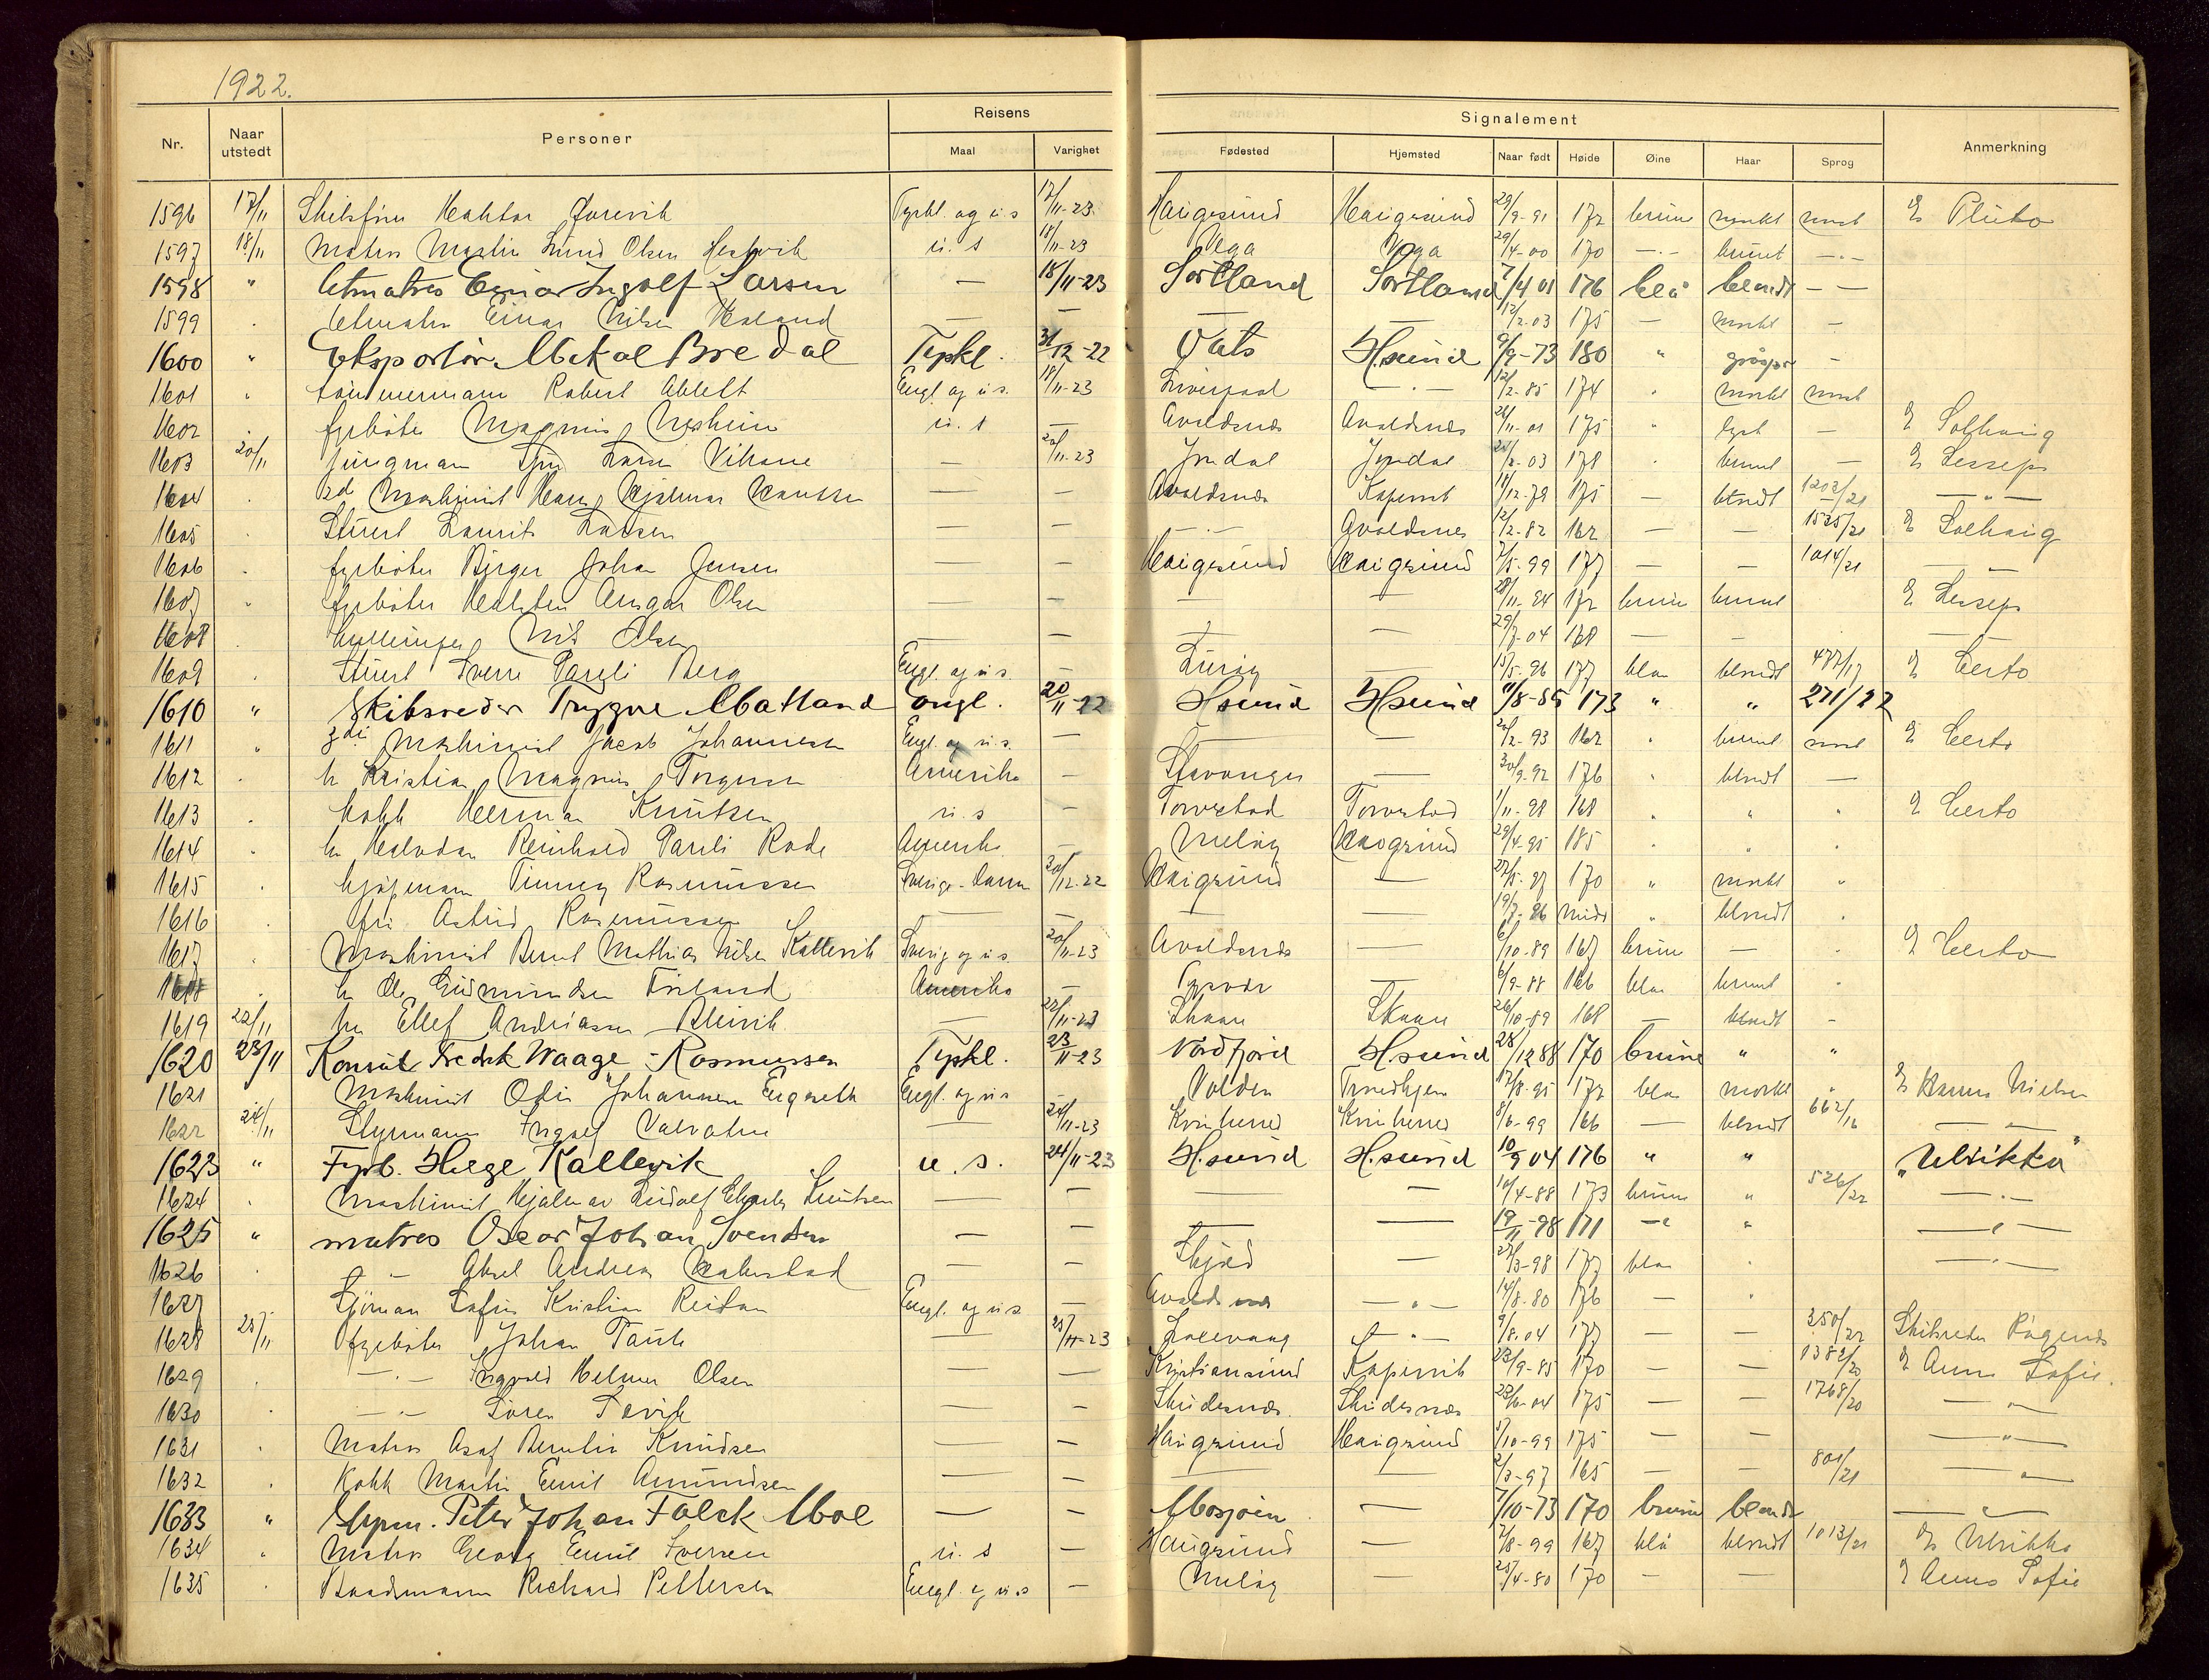 1922.
Nr. Naar utstedt Personer Reisens Maal Varighet Signalement Fødested Hjemsted Naar født Høide Øine Haar Sprog Anmerkning
1596 17/11 Skibsfører Haktor Jarevik Tyskl. og u.s 17/11-23. Haugesund Haugesund 29/9-91 172 brune mørkt norsk Pluto
1597 18/11 Matros Martin Lund Olsen u. s 18/11-23 Vega Vega 29/4-00 170 —·— brunt —·—
1598 " letmatros Einar Ingolf Larsen — 18/11-23 Sortland Sortland 7/4 01 176 blå blondt — —
1599 . letmatros Einar Nilsen — — — 12/2-03 175 — mørkt —
1600 " Eksportør Mikal Bredal Tyskl. 31/12-22 Vats H.sund 9/9-73 180 " gråspr. —
1601 . tømmermann Robert Engl. og u.s. 18/11-23 Liverpool —·— 12/2-85 174 . mørkt norsk
1602 . fyrbøter Magnus Nesheim u. s — Avaldsnes Avaldsnes 28/11-01 175 " lyst — Solhaug
1603 20/11 Jungmann Lars Vikane — 20/11-23 Jondal Jondal /2-03 178 . brunt — Lesseps
1604 . 2d Maskinist Hans Hjalmar Knutsen — — Avaldsnes Kopervik 11/12-79 175 — blondt 1202/21 —"—
1605 . Stuert Laurits Larsen — — —·— Avaldsnes 12/2-82 162 — — 1535/21 Solhaug
1606 . fyrbøter Birger Johan Jensen — — Haugesund Haugesund 7/5-99 177 — — 1014/21 —
1607 . fyrbøter Ansgar Olsen — — — — 28/11-24 172 brune brunt Lesseps
1608 . Nils Olsen — — — — 29/7-04 168 — — —
1609 . Stuert Sverre Pareli Berg Engl. og u.s. — — 15/5-96 177 blå blondt 477/17 Certo
1610 " Skibsreder Trygve Matland Engl. 20/11-22 H.sund H.sund 11/8-85 173 " " 271/22
1611 " 3die Maskinist Jacob Johannesen Engl. og u.s. — — — /2-93 162 . brunt norsk Certo
1612 . hr Kristian Magnus Torgersen Amerika — Stavanger — 30/9-92 176 . blondt —
1613 . Kokk Herman Knutsen u. s — Torvestad Torvestad 1/11-98 168 . " . Certo
1614 . hr Halvdan Reinhold Pareli Rode Amerika — Haugesund 29/4-95 185 . " .
1615 . kjøpmann Rasmussen Sverige-Danm 20/12-22 Haugesund — 27/5-97 170 " mørkt "
1616 . fru Astrid Rasmussen — — — 19/7-96 midd " blondt .
1617 . Maskinist Bernt Mathias Nilsen Kallevik Sverig og u.s. 20/11-23 Avaldsnes — 6/10-89 167 brune — . Certo
1618 . hr Ole Gudmundsen Amerika — Tysvær — 6/9-88 166 blå brunt .
1619 22/11 hr Ellef Andreassen — 22/11-23 Skaare Skaare 26/10-89 168 — blondt —
1620 23/11 Konsul Fredrik Waage-Rasmussen Tyskl. 23/11-23 Nordfjord H.sund 28/12 88 170 brune " "
1621 " Maskinist Johannesen Engeseth Engl. og u.s Volden Trondhjem 17/8-95 172 blå mørkt " Hans Nielsen
1622 24/11 Styrmann Ingolf — 24/11-23 Kvinherred Kvinherred 8/6-99 166 — blondt 662/16 —
1623 " Fyrb. Helge Kallevik u. s. 24/11-23 H.sund H.sund 10/9 04 176 " " „Ulrikka"
1624 . Maskinist Hjalmar Ludolf Charles Knutsen — — — — 10/4-88 173 brune " 526/22 —·—
1625 " matros Oscar Johan Svendsen — — — — 19/11-98 171 — " —"—
1626 . —"— Aksel Andreas — — Skjold — 27/3-98 177 blå . —·—
1627 . Sjøman Kristian Reitan Engl. og u.s — Avaldsnes —"— 14/8-80 176 — "
1628 25/11 fyrbøter Johan — 25/11-23 —"— 9/8-04 177 — — 250/22 Skibsreder
1629 . —·— Ingvald Helmer Olsen — — Kristiansund Kopervik 23/9-85 170 — — 1382/20 Anna Sofie.
1630 . —·— Søren — — Skudesnes Skudesnes 23/6-04 175 — — 1768/20 —"—
1631 . Matros Asaf Bernhu Knudsen — — Haugesund Haugesund /10-99 175 — — —"—
1632 . Kokk Martin Emil Amundsen — — — — 2/3-97 165 — — 801/21 —"—
1633 " Styrm. Peter Johan Falck Moe — — Mosjøen — 7/10-73 170 brune blondt —"—
1634 . Matros Georg Emil Iversen u. s — Haugesund — 7/8-99 167 blå blondt 1013/21 Ulrikka
1635 . Baadsmann Richard Pettersen Engl. og u.s — — 25/4-80 170 — — Anna Sofie